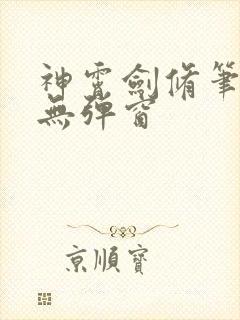 神霄劍脩筆
無彈窗
京順寶